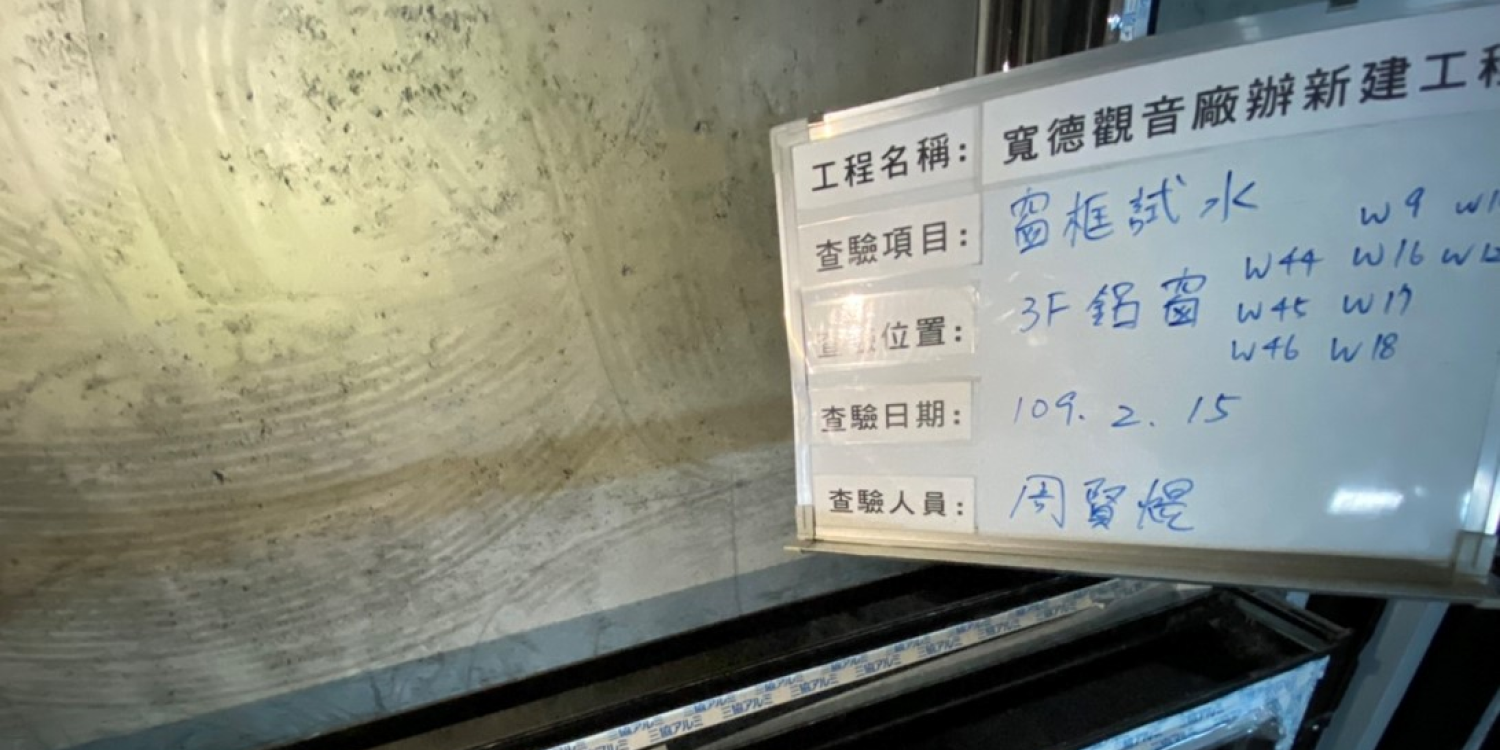 工程名稱: 寬德觀音廠辦新建工程
查驗項目: 窗框試水 W9
W44 W16 W12
位置: 3F 鋁窗 W45 W17
W46 W18
查驗日期: 109. 2. 15
查驗人員: 周賢焜
三協アルミ 三協アルミ 三協アルミ 三協アルミ 三協アルミ